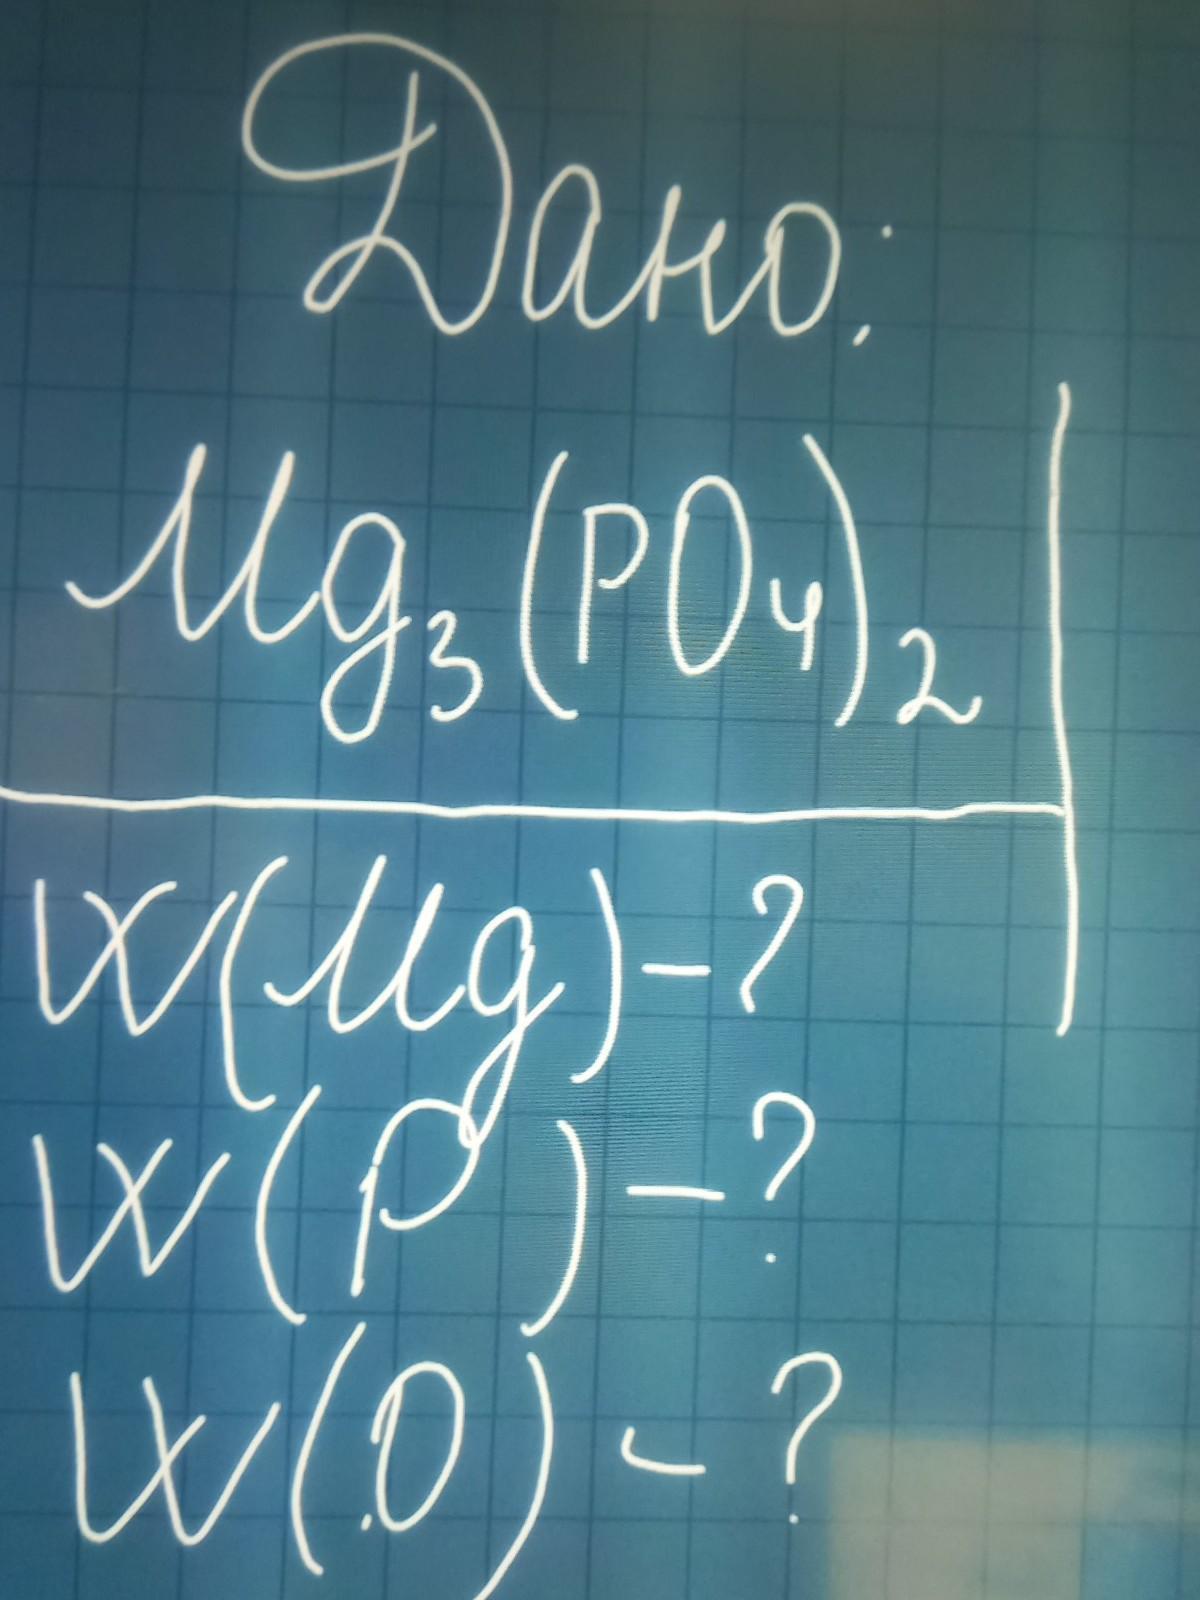 Дано:
Mg₃(PO₄)₂
W(Mg)-?
W(P)-?
W(O)-?